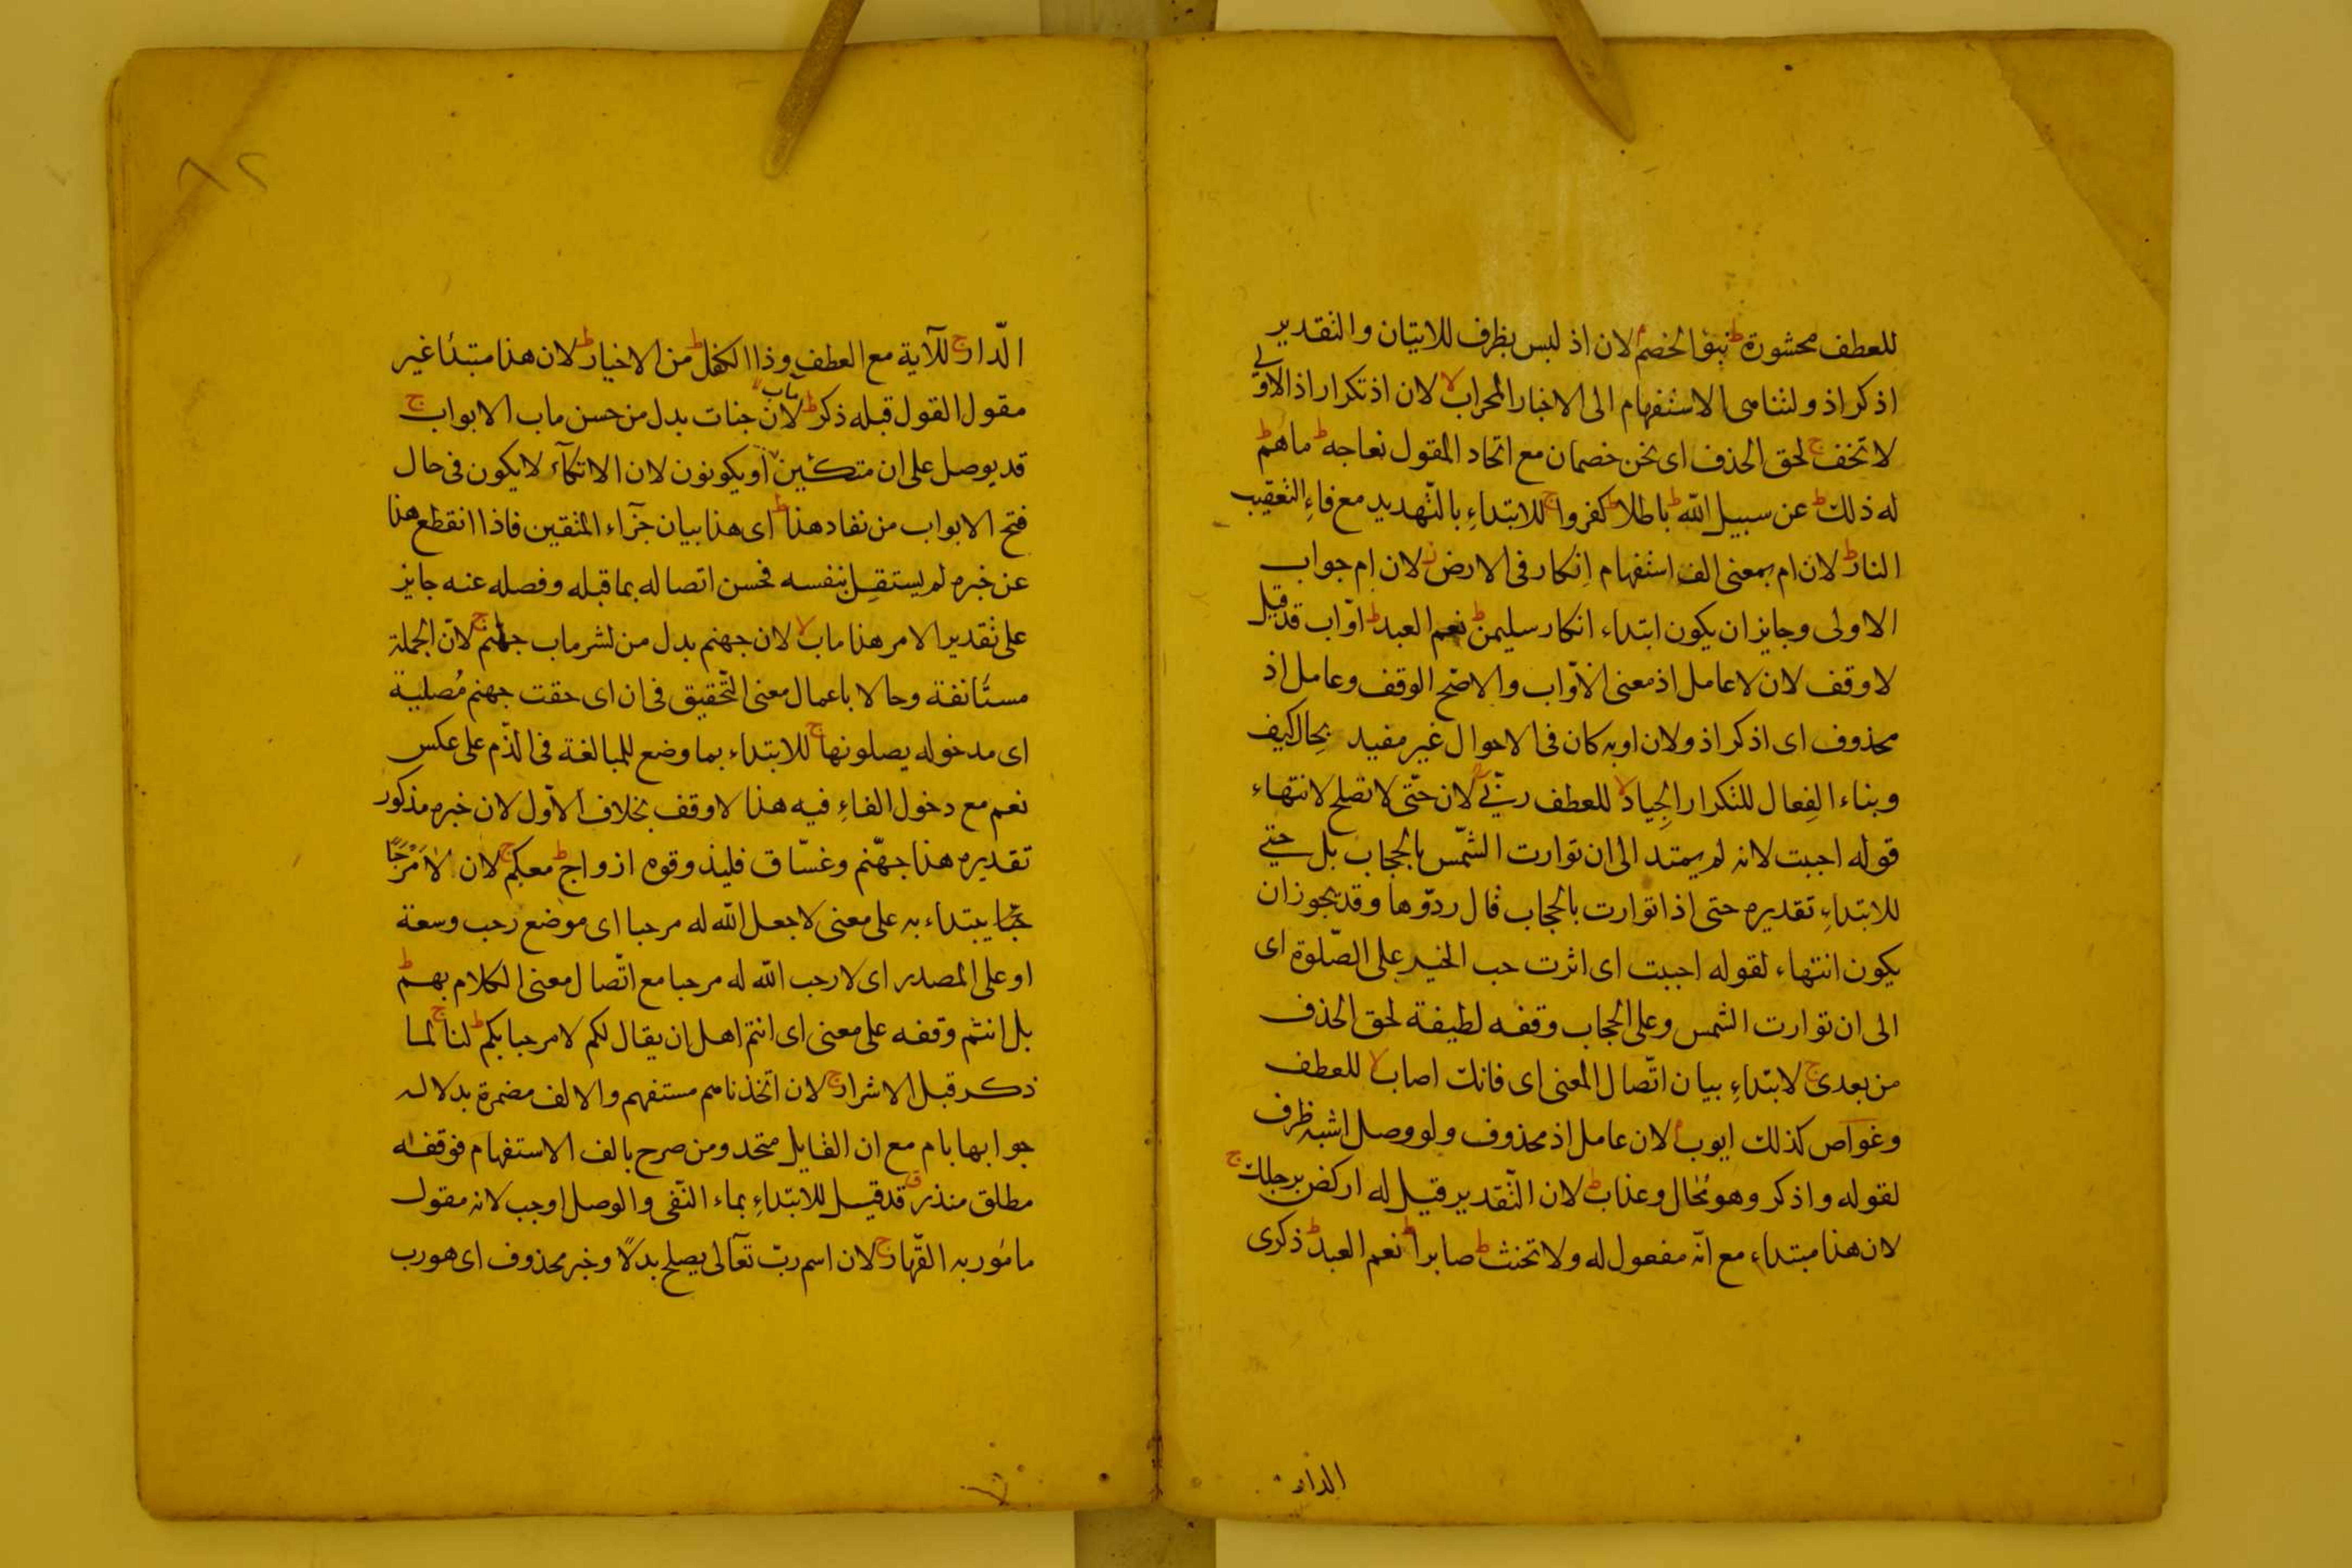 للعطف محشورة ط نبؤ الخصم م لان اذ ليس بظرف للاتيان والتقدير
اذكر اذ ولتناهى الاستفهام الى الاخبار المحراب لا لان اذ تكرار اذ الاولى
لا تخف ج لحق الحذف اى نحن خصمان مع اتحاد المقول نعاجه ط ما هم ط
له ذلك ط عن سبيل الله ط باطلا ط كفروا ج للابتداءِ بالتّهديد مع فاءِ التعقيب
النار ط لان ام بمعنى الف استفهام اِنكار فى الارض ز لان ام جواب
الاولى وجايز ان يكون ابتداء انكار سليمن ط نعم العبد ط اوّاب قد قيل
لا وقف لان لا عامل اذ معنى الاوّاب والاصّح الوقف وعامل اذ
محذوف اى اذكر اذ ولان اوبه كان فى الاحوال غير مفيد بحال كيف
وبناء الفِعال للتكرار الجِياد لا للعطف ربّى ج لان حتّى لا تصلح لانتهاء
قوله احببت لانه لم يمتد الى ان توارت الشّمس بالحجاب بل حتى
للابتداءِ تقديره حتى اذا توارت بالحجاب قال ردّوها وقد يجوز ان
يكون انتهاء لقوله احببت اى اثرت حب الخير على الصّلوة اى
الى ان توارت الشمس وعلى الحجاب وقفه لطيفة لحق الحذف
من بعدى ج لابتداءِ بيان اتّصال المعنى اى فانك اصاب لا للعطف
وغواص كذلك ايوب م لان عامل اذ محذوف ولو وصل اشبه ظرف
لقوله واذكر وهو مُحال وعذاب ط لان التّقدير قيل له اركض برجلك ج
لان هذا مبتداء مع انّه مفعول له ولا تحنث ط صابرا ط نعم العبد ط ذكرى
الدار
٨٢
الدّار ج للآية مع العطف وذا الكفل ط من الاخيار ط لان هذا مبتدأ غير
مقول القول قبله ذكر ط مآب لا لان جنات بدل من حسن ماب الابواب ج
قد يوصل على ان متكئين او يكونون لان الاتكآء لا يكون فى حال
فتح الابواب من نفاد هذا ط اى هذا بيان جزآء المتقين فاذا انقطع هذا
عن خبره لم يستقل بنفسه فحسن اتصاله بما قبله وفصله عنه جايز
على تقدير الامر هذا ماب لا لان جهنم بدل من لشر ماب جهنم ج لانّ الجملة
مستأنفة وحالا باعمال معنى التّحقيق فى ان اى حقت جهنم مُصلية
اى مدخوله يصلونها ج للابتداء بما وضع للمبالغة فى الذّم على عكس
نعم مع دخول الفاءِ فيه هذا لا وقف بخلاف الاوّل لان خبره مذكور
تقديره هذا جهّنم وغسّاق فليذوقوه ازواج ط معكم ج لان لا مَرْحَبًا
يبتداء به على معنى لا جعل الله له مرحبا اى موضع رحب وسعة
او على المصدر اى لا رحب الله له مرحبا مع اتّصال معنى الكلام بهم ط
بل انتم وقفه على معنى اى انتم اهل ان يقال لكم لا مرحبا بكم ط لنا ج لما
ذكر قبل الاشرار ج لان اتخذناهم مستفهم والالف مضمرة بدلاله
جوابها بام مع ان القايل متحد ومن صرح بالف الاستفهام فوقفه
مطلق منذر ق قد قيل للابتداءِ بماء النّفى والوصل اوجب لانه مقول
مامور به القّهار ج لان اسم ربّ تعآلى يصلح بدلًا وخبر محذوف اى هو رب